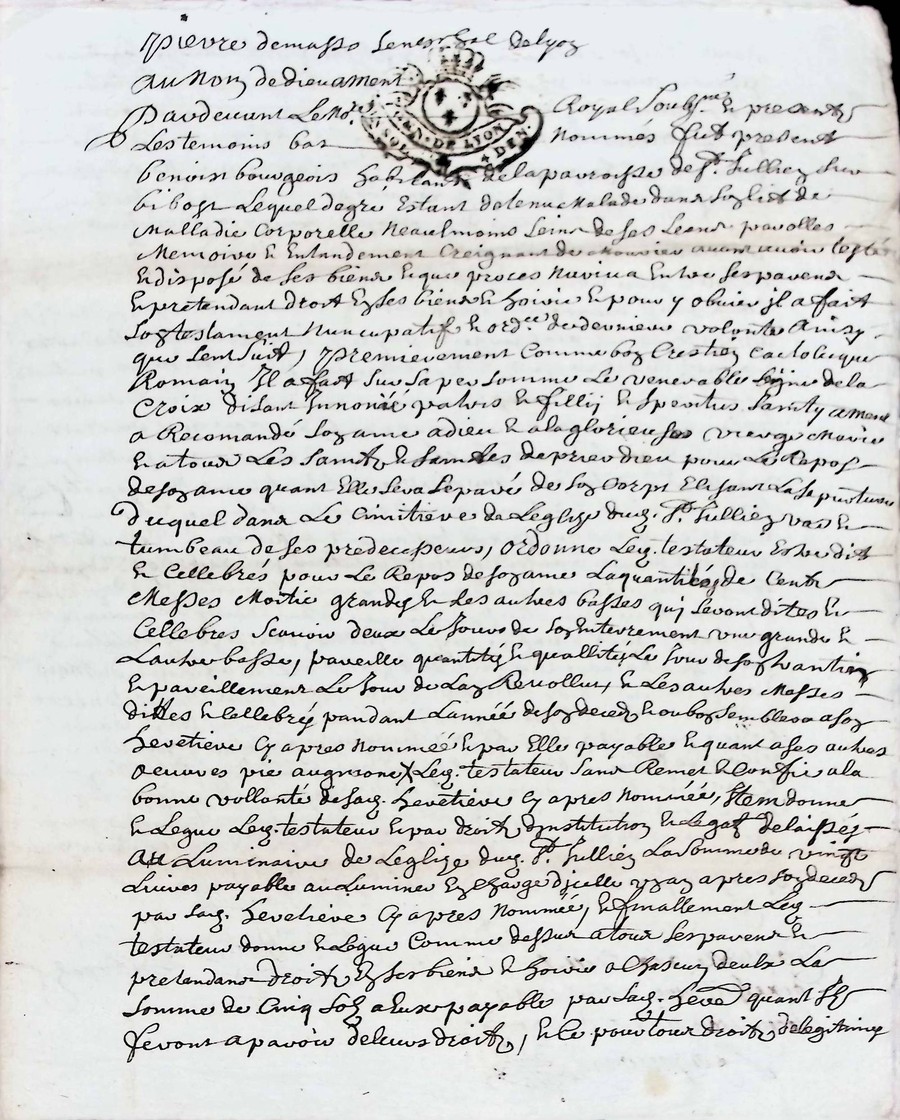 pierre demasso Seneschal delyon
au nom de dieu ament
Pardevant Le no.re Royal Soubs.né & presents
GEN. DE LYON
Les temoins bas nommés fut present
benoist bourgeois habitant de la parroisse de St. Jullien sur
bibost Lequel degré Estant detenu malade dans son lict de
malladie Corporelle neaulmoins Seins de ses Sens parolles
memoire & Entandement Creignant de mourir avant avoir testé
& disposé de ses biens & que proces nariva Entre ses parens
& pretendant droit En ses biens & hoirie & pour y obvier jl a fait
Son testament nuncupatif & ord.ce de derniere volonté Ainsy
que Sent Suit, premierement Comme bon Crestien Catolicque
Romain Jl a fait Sur Sa personne Le venerable Signe de la
Croix disant Jn nomine patris & fillij & Speritus Santy ament
a Recomandé Son ame a dieu & a la glorieuse vierge marie
& a tous Les Saints & Saintes de prier dieu pour Le Repos
de son ame quant Elle Sera Separé de Son Corps Elisant La Sepulture
duquel dans Le Cimitiere de Leglise dud. St. Jullien vas &
tumbeau de ses predecesseurs, ordonne Led. testateur Estre dit
& Cellebrés pour Le Repos de son ame La quantité de Cent
Messes Moitié grandes & Les autres basses quj Seront dites &
Cellebres Scavoir deux Le Jour de Son Enterrement une grande &
Lautre basse, pareille quantité & quallité Le Jour de son
& pareillement Le Jour de Lan Revollut, & Les autres Messes
dittes & Cellebrés pandant Lannée de son deceds & ou bon Semblera a son
heretiere Cy apres nommée & par Elle payable & quant a ses autres
oeuvres pie Led. testateur Sans Remet & Confie a la
bonne vollonté de sad. heretiere Cy apres nommée, Jtem donne
& Legue Led. testateur & par droit dJnstitution & Legat delaissés
au Luminaire de Leglize dud. St. Jullien La Somme de vingt
Livres payable au Luminer En Charge dicelle un an apres son deceds
par Sad. heretiere Cy apres nommée, & finallement Led.
testateur donne & Legue Comme dessus a tous Ses parens &
pretendans droits En Ses biens & hoirie a Chascun deulx La
Somme de Cinq Solz a Eux payables par Sad. here. quant Jls
feront aparoir de leurs droits, & Ce pour tous droits de legitime